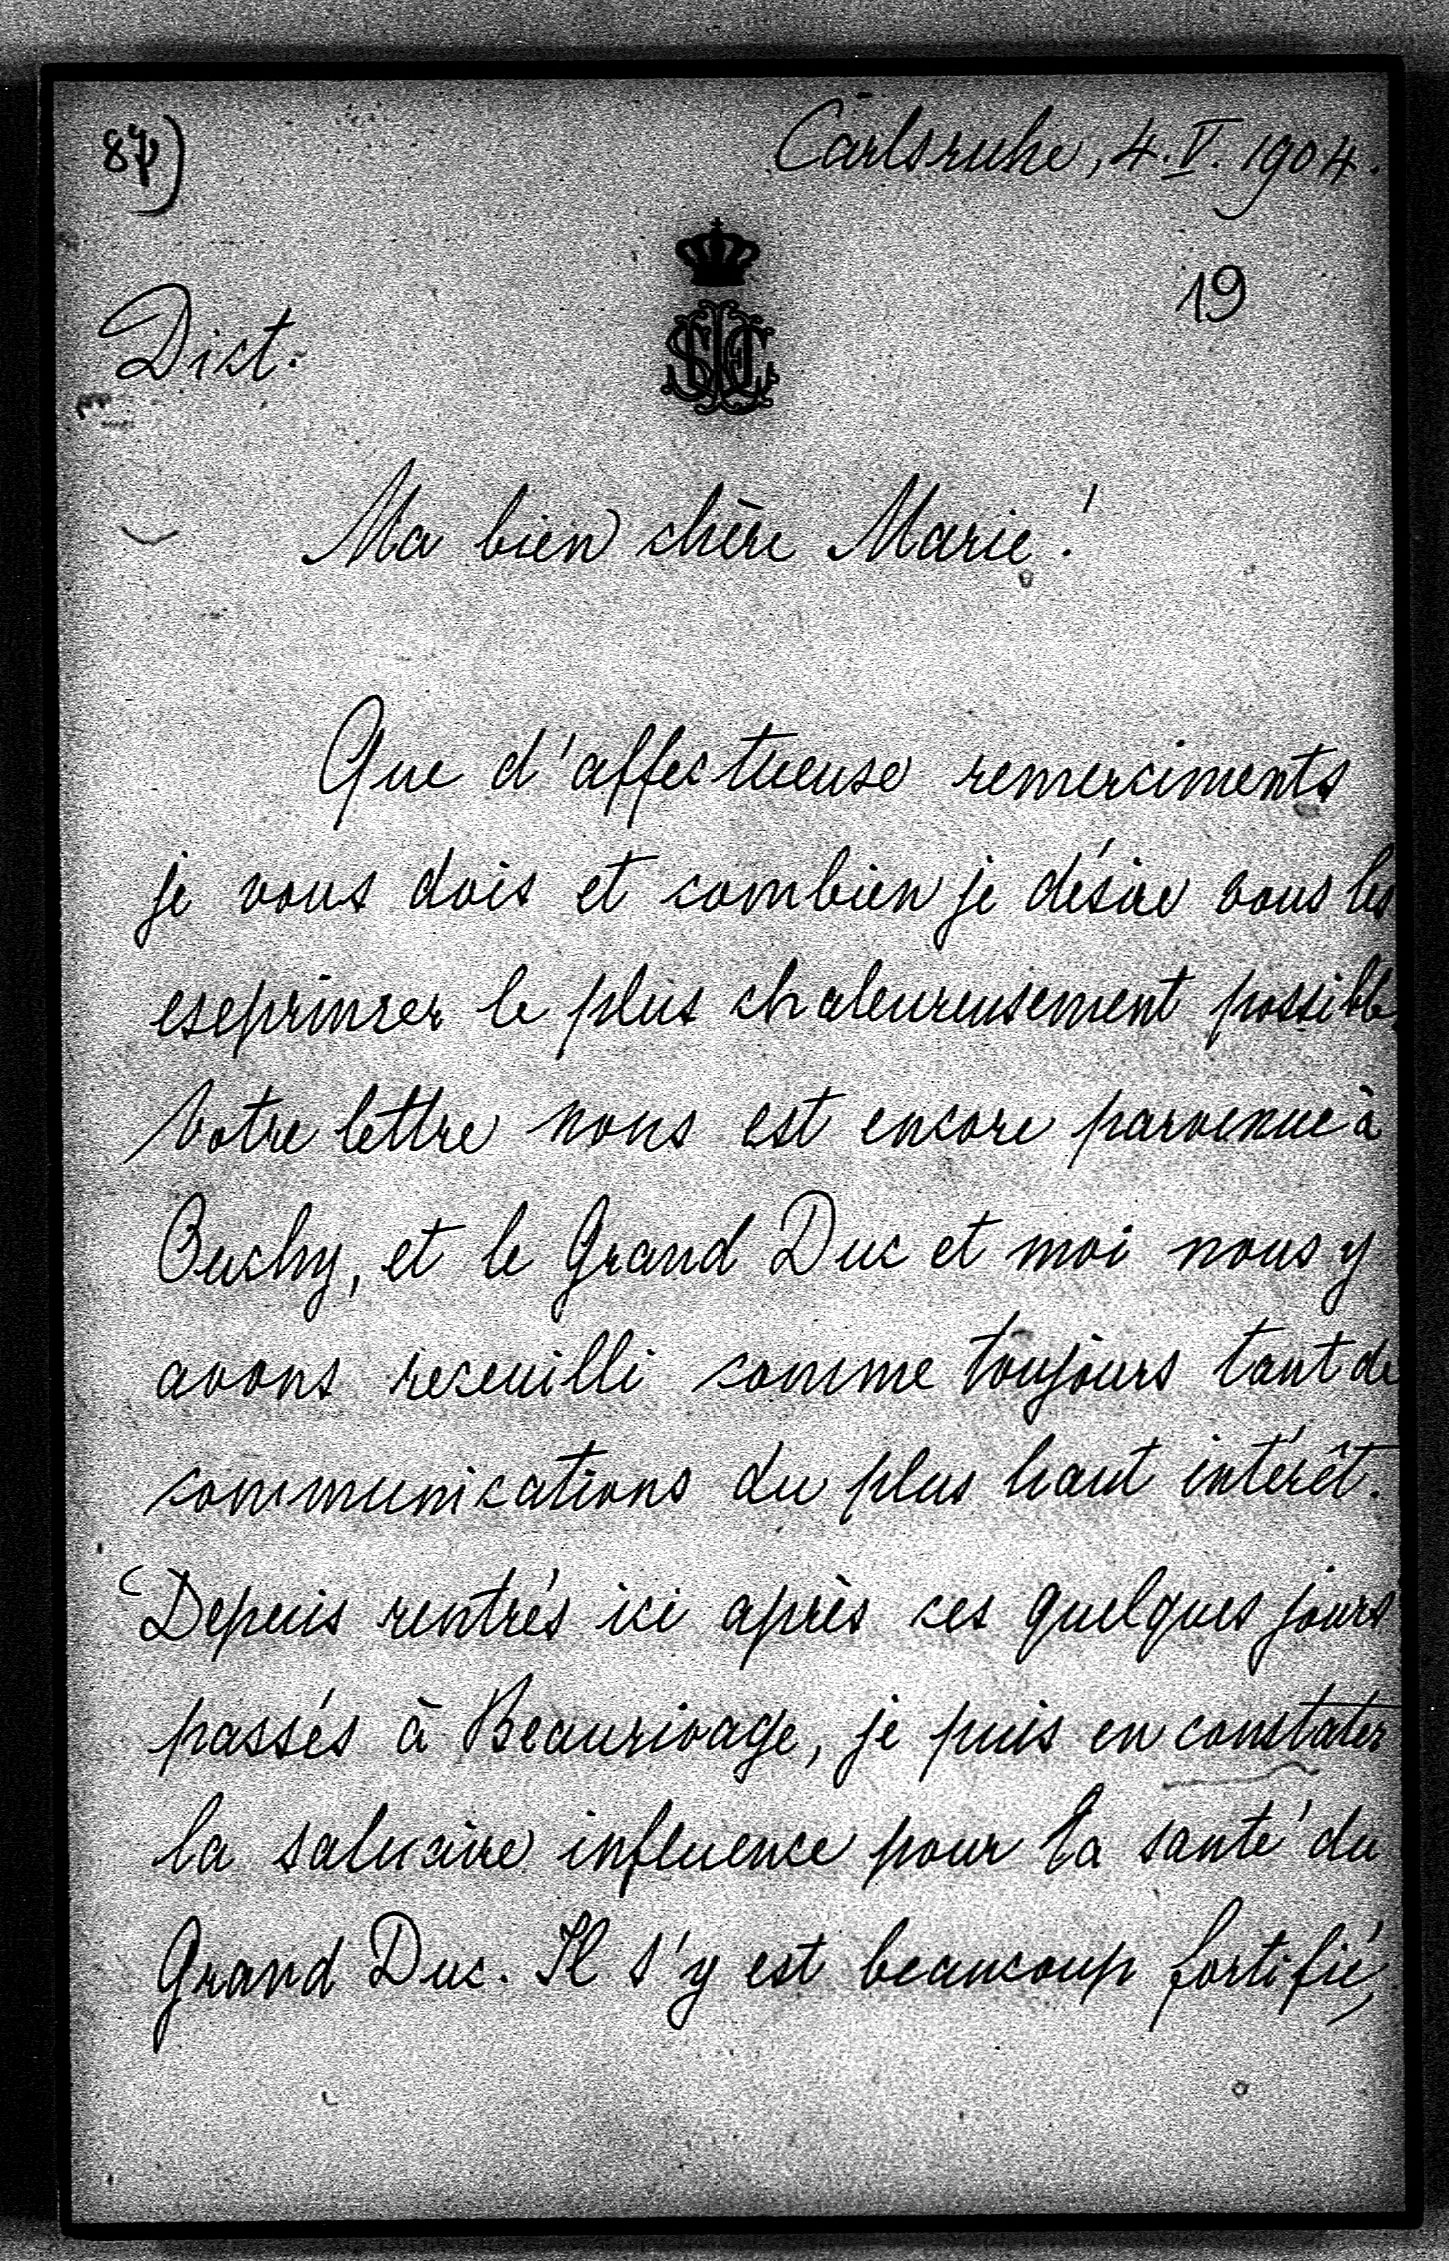 Carlsruhe, 4. V. 1904.
19
Dict.
Ma bien chère Marie!
Que d'affectueuse remerciments
je vous dois et combien je désire vous les
exprimer le plus chaleureusement possible.
Votre lettre nous est encore parvenue à
Ouchy, et le Grand Duc et moi nous y
avons receuilli comme toujours tant de
communications du plus haut intérêt.
Depuis rentrés ici après ces quelques jours
passés à Beaurivage, je puis en constater
la salucaire influence pour la santé du
Grand Duc. Il s'y est beaucoup fortifié,